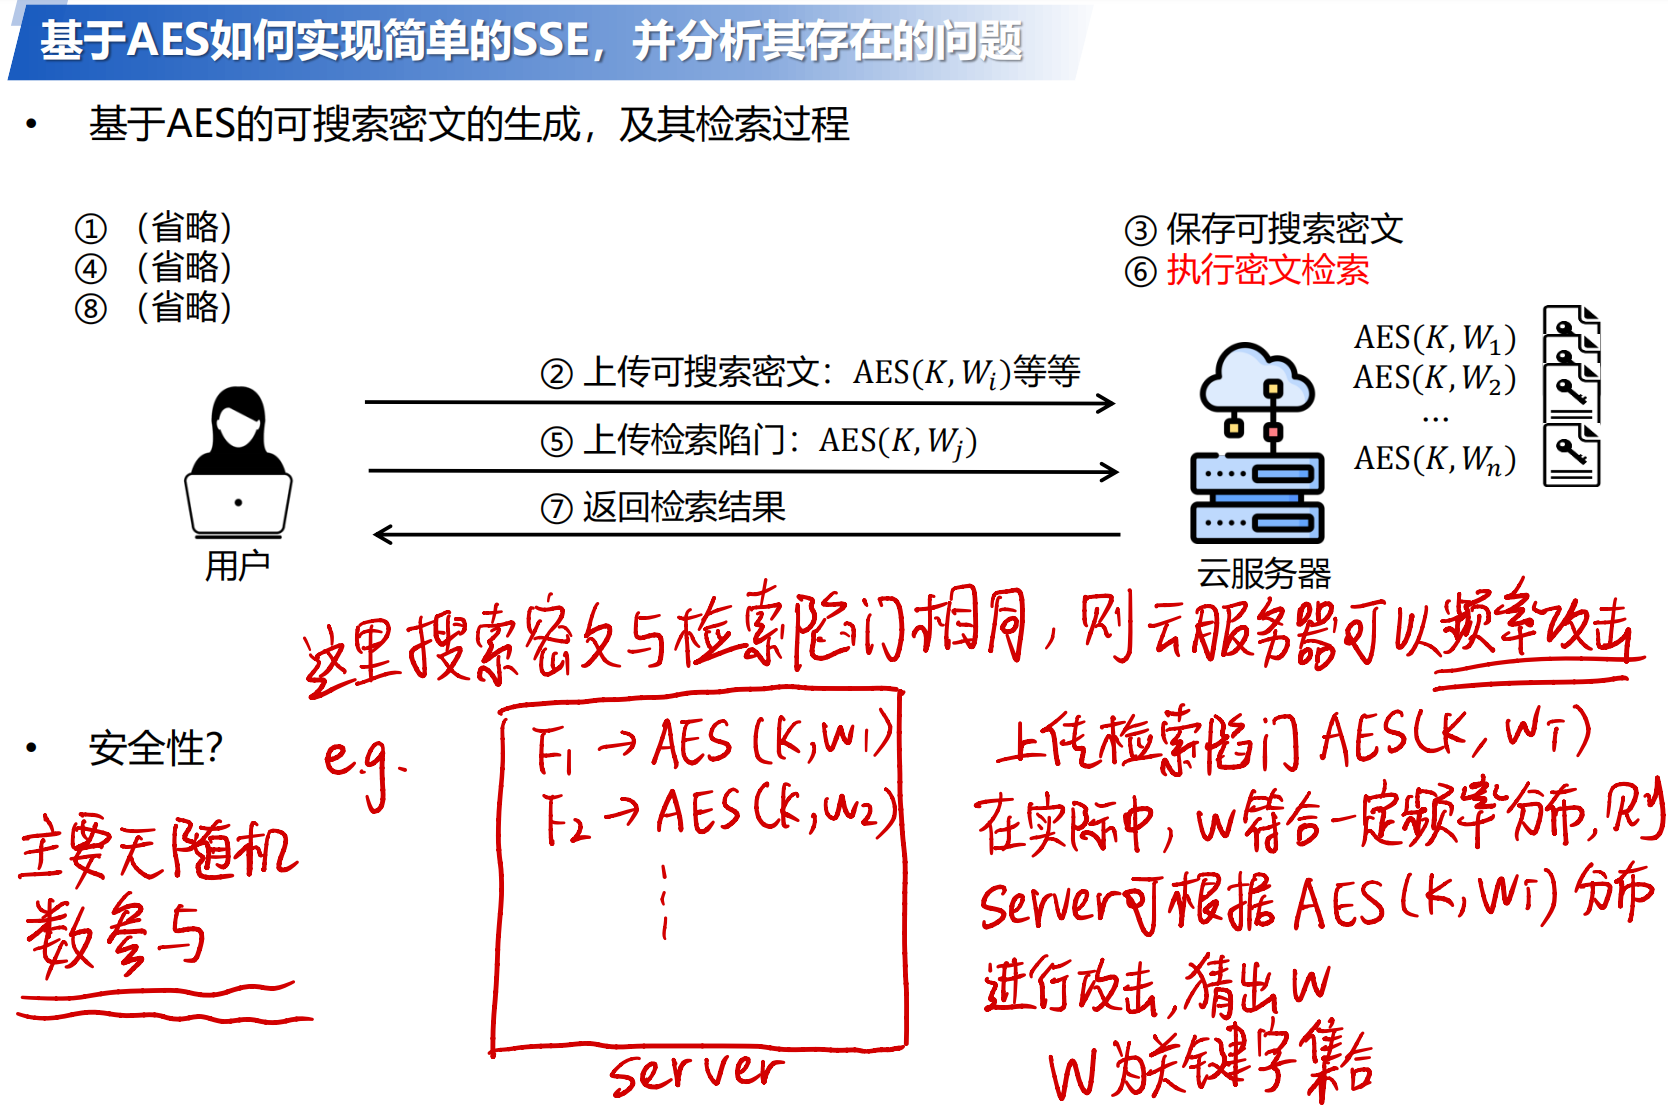 基于AES如何实现简单的SSE，并分析其存在的问题
• 基于AES的可搜索密文的生成，及其检索过程
① （省略）
④ （省略）
⑧ （省略）
③ 保存可搜索密文
⑥ 执行密文检索
② 上传可搜索密文：AES(K, Wᵢ)等等
⑤ 上传检索陷门：AES(K, Wⱼ)
⑦ 返回检索结果
AES(K, W₁)
AES(K, W₂)
…
AES(K, Wₙ)
用户
云服务器
这里搜索密文与检索陷门相同，则云服务器可以频率攻击
• 安全性？
主要无随机
数参与
e.g.
F₁ → AES (K, W₁)
F₂ → AES (K, W₂)
⋮
server
上传检索陷门 AES(K, Wᵢ)
在实际中，W符合一定频率分布，则
server可根据 AES(K, Wᵢ) 分布
进行攻击，猜出W
W为关键字集合